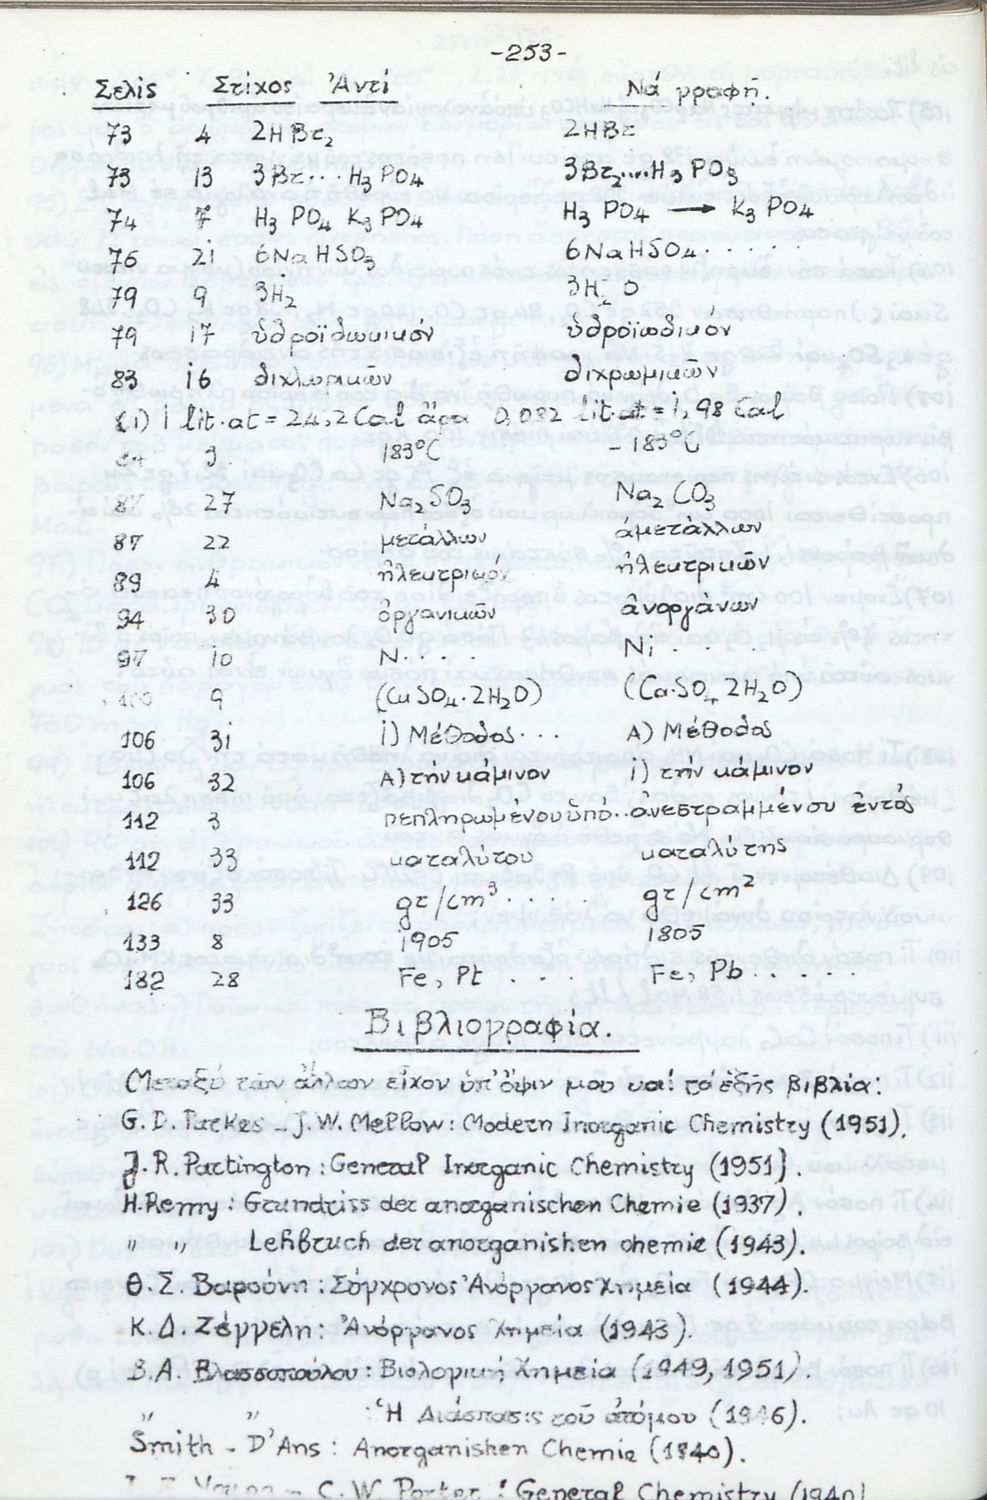 -253-
Σελὶς Στίχος Ἀντί Να γραφῆ.
73 4 2HBr₂ 2HBr
73 13 3Br... H₃PO₄ 3Br....H₃PO₃
74 7 H₃PO₄ K₃PO₄ H₃PO₄ → K₃PO₄
76 21 6NaHSO₃ 6NaHSO₄
79 9 3H₂ 3H₂O
79 17 ὑδροϊδωικιόν ὑδροϊωδικόν
83 16 διχλωρικῶν διχρωμικῶν
1) 1 lit.at = 24,2 Cal ἄρα 0,082 lit.at = 1,98 Cal
9 183°C -183°C
87 27 Na₂SO₃ Na₂CO₃
87 22 μετάλλων ἀμετάλλων
89 4 ἠλεκτρικόν ἠλεκτρικῶν
94 30 ὀργανικῶν ἀνοργάνων
97 10 N.... Ni....
100 9 (CuSO₄.2H₂O) (CaSO₄ 2H₂O)
106 31 1) Μέθοδος... Α) Μέθοδος
106 32 Α) τὴν κάμινον 1) τὴν κάμινον
112 3 πεπληρωμένου ὑπό.. ἀνεστραμμένου ἐντός
112 33 καταλύτου καταλύτης
126 33 gr/cm³.... gr/cm²
133 8 1905 1805
182 28 Fe, Pt.... Fe, Pb...
Βιβλιογραφία.
Μεταξύ τῶν ἄλλων εἶχον ὑπ' ὄψιν μου καί τά ἑξῆς βιβλία:
G.D. Parkes - J.W. Mellow: Modern Inorganic Chemistry (1951).
J.R. Partington: General Inorganic Chemistry (1951).
H. Remy: Grundriss der anorganischen Chemie (1937).
" " Lehrbruch der anorganishen chemie (1943).
Θ.Σ. Βαρούνη: Σύγχρονος Ἀνόργανος Χημεία (1944).
Κ.Δ. Ζέγγελη: Ἀνόργανος Χημεία (1943).
Β.Α. Βλασσοπούλου: Βιολογική Χημεία (1949, 1951).
" " : Ἡ Διάσπασις τοῦ ἀτόμου (1946).
Smith - D'Ans: Anorganishen Chemie (1940).
Young - C.W. Porter: General Chemistry (1940)